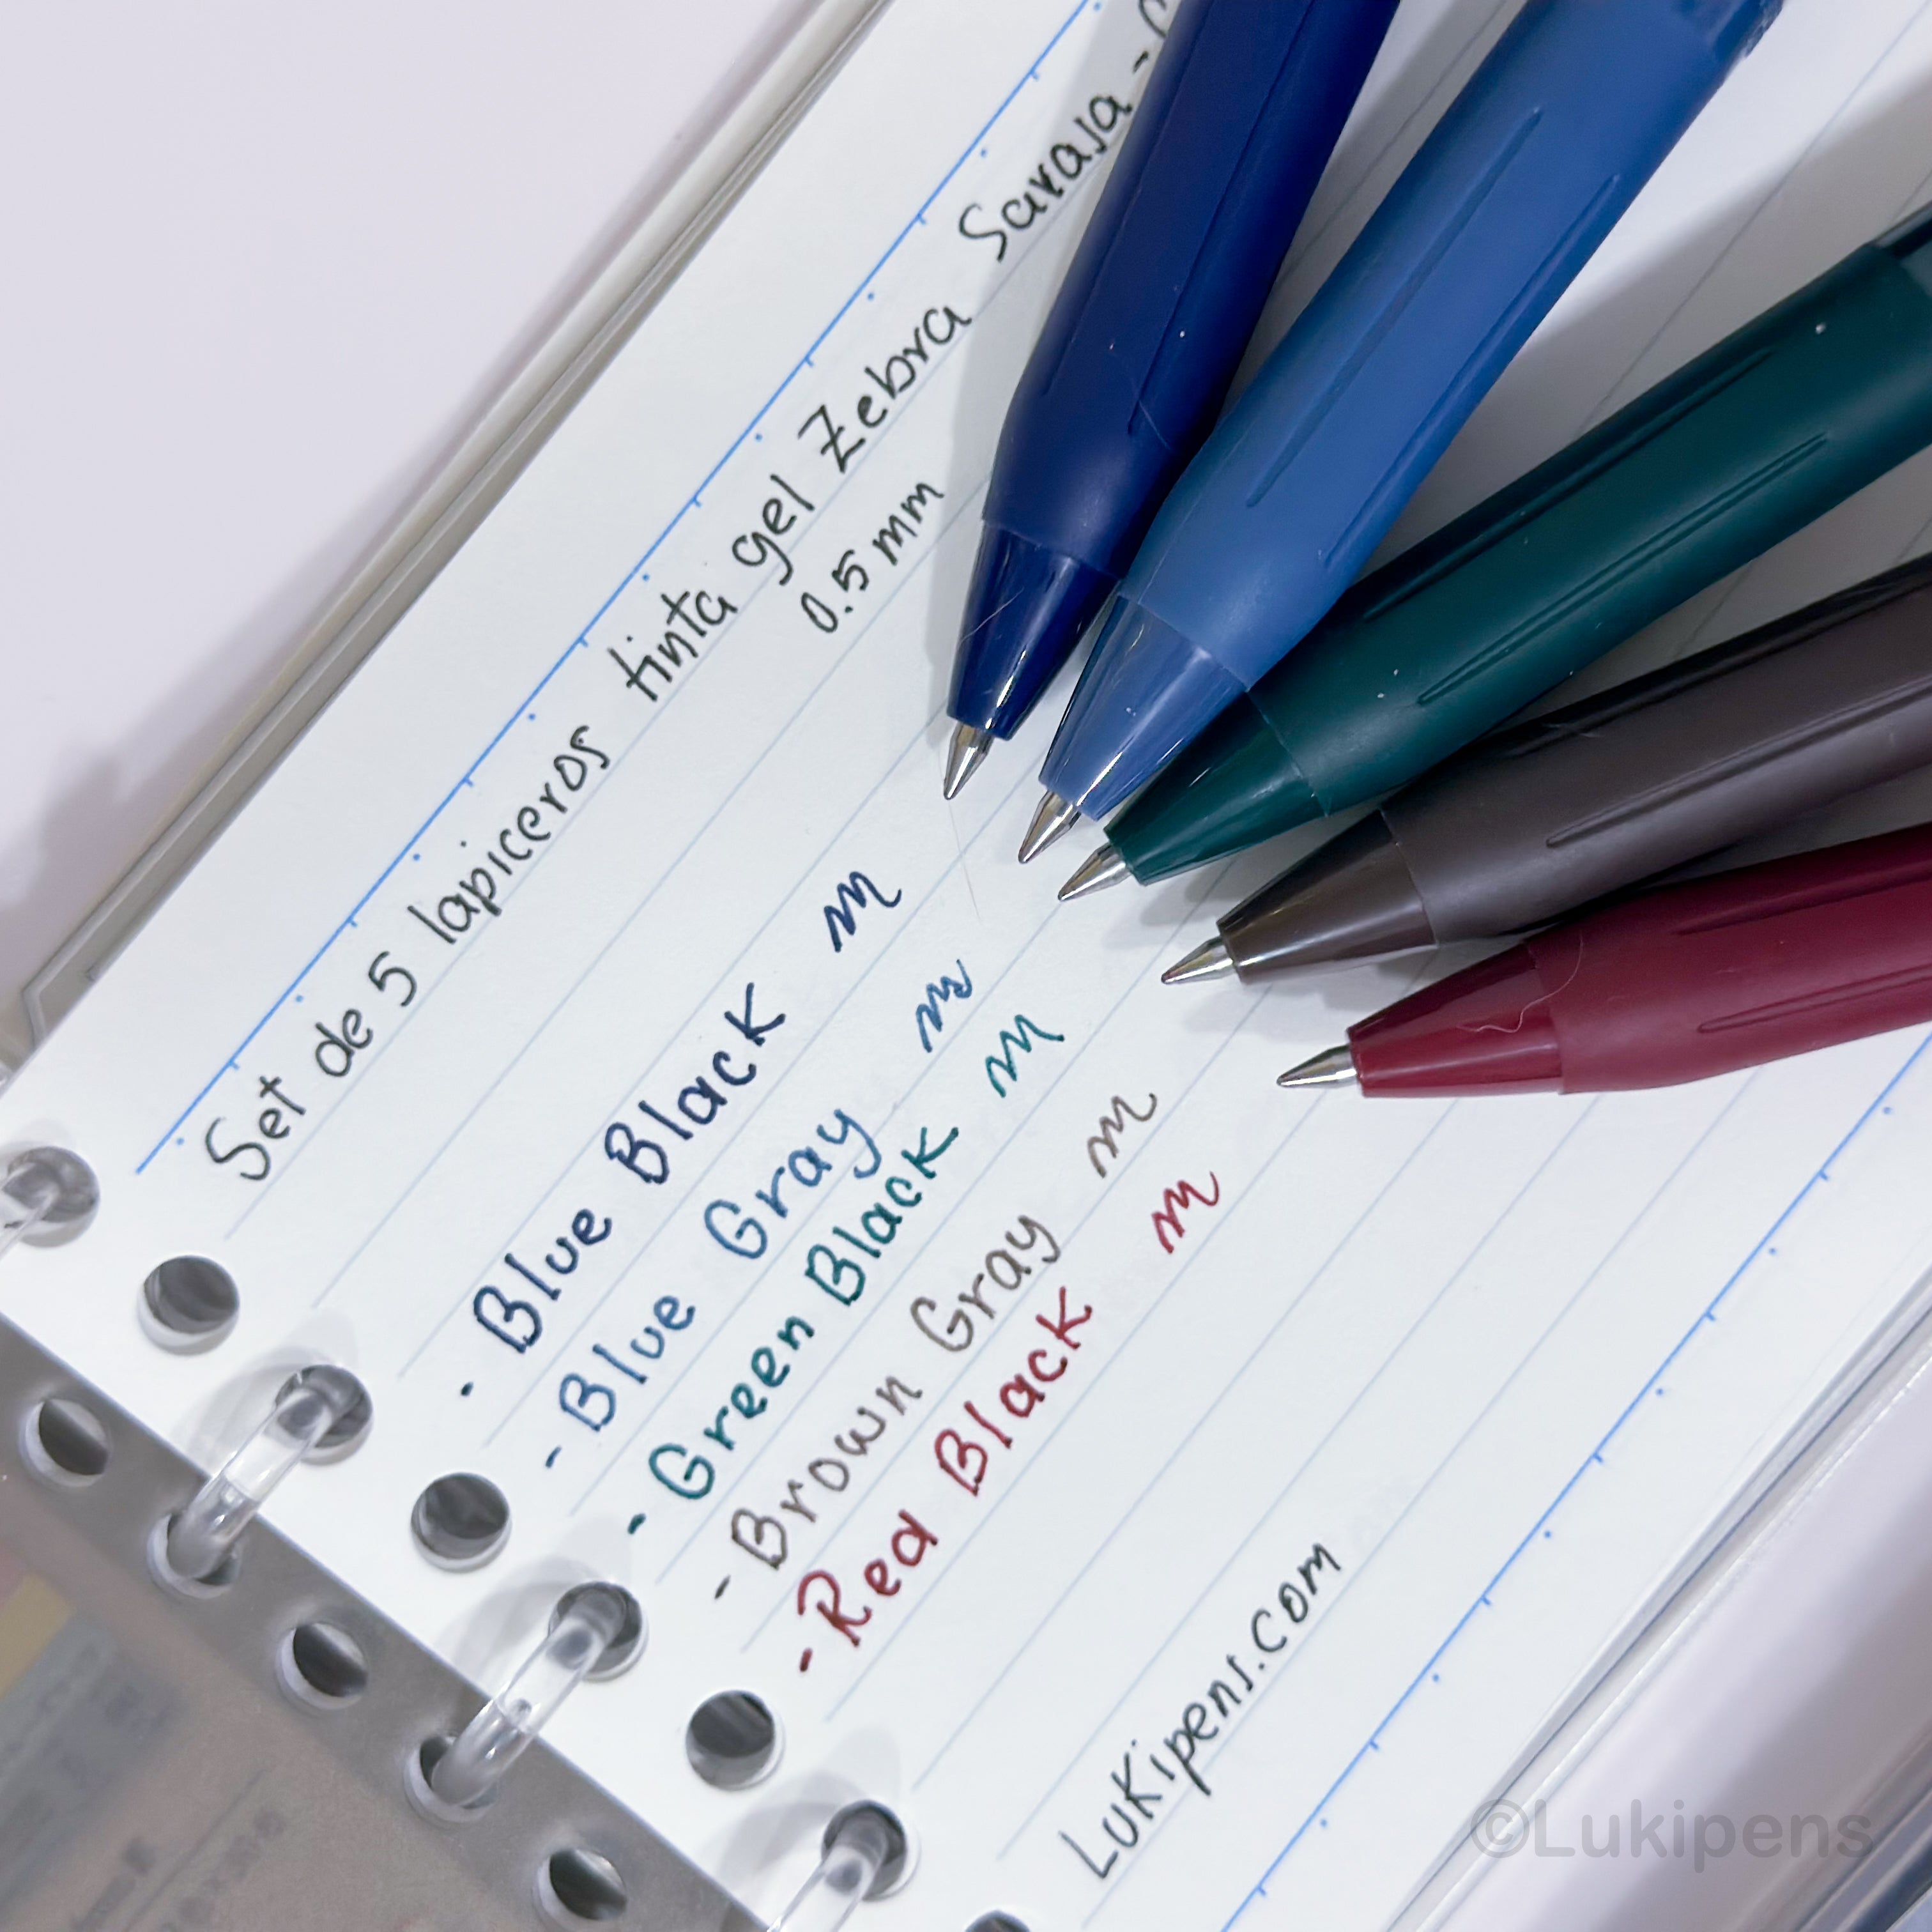 Set de 5 lapiceros tinta gel Zebra Sarasa -
0.5 mm
· Blue Black m
- Blue Gray m
- Green Black m
- Brown Gray m
- Red Black m
LuKipens.com
©Lukipens